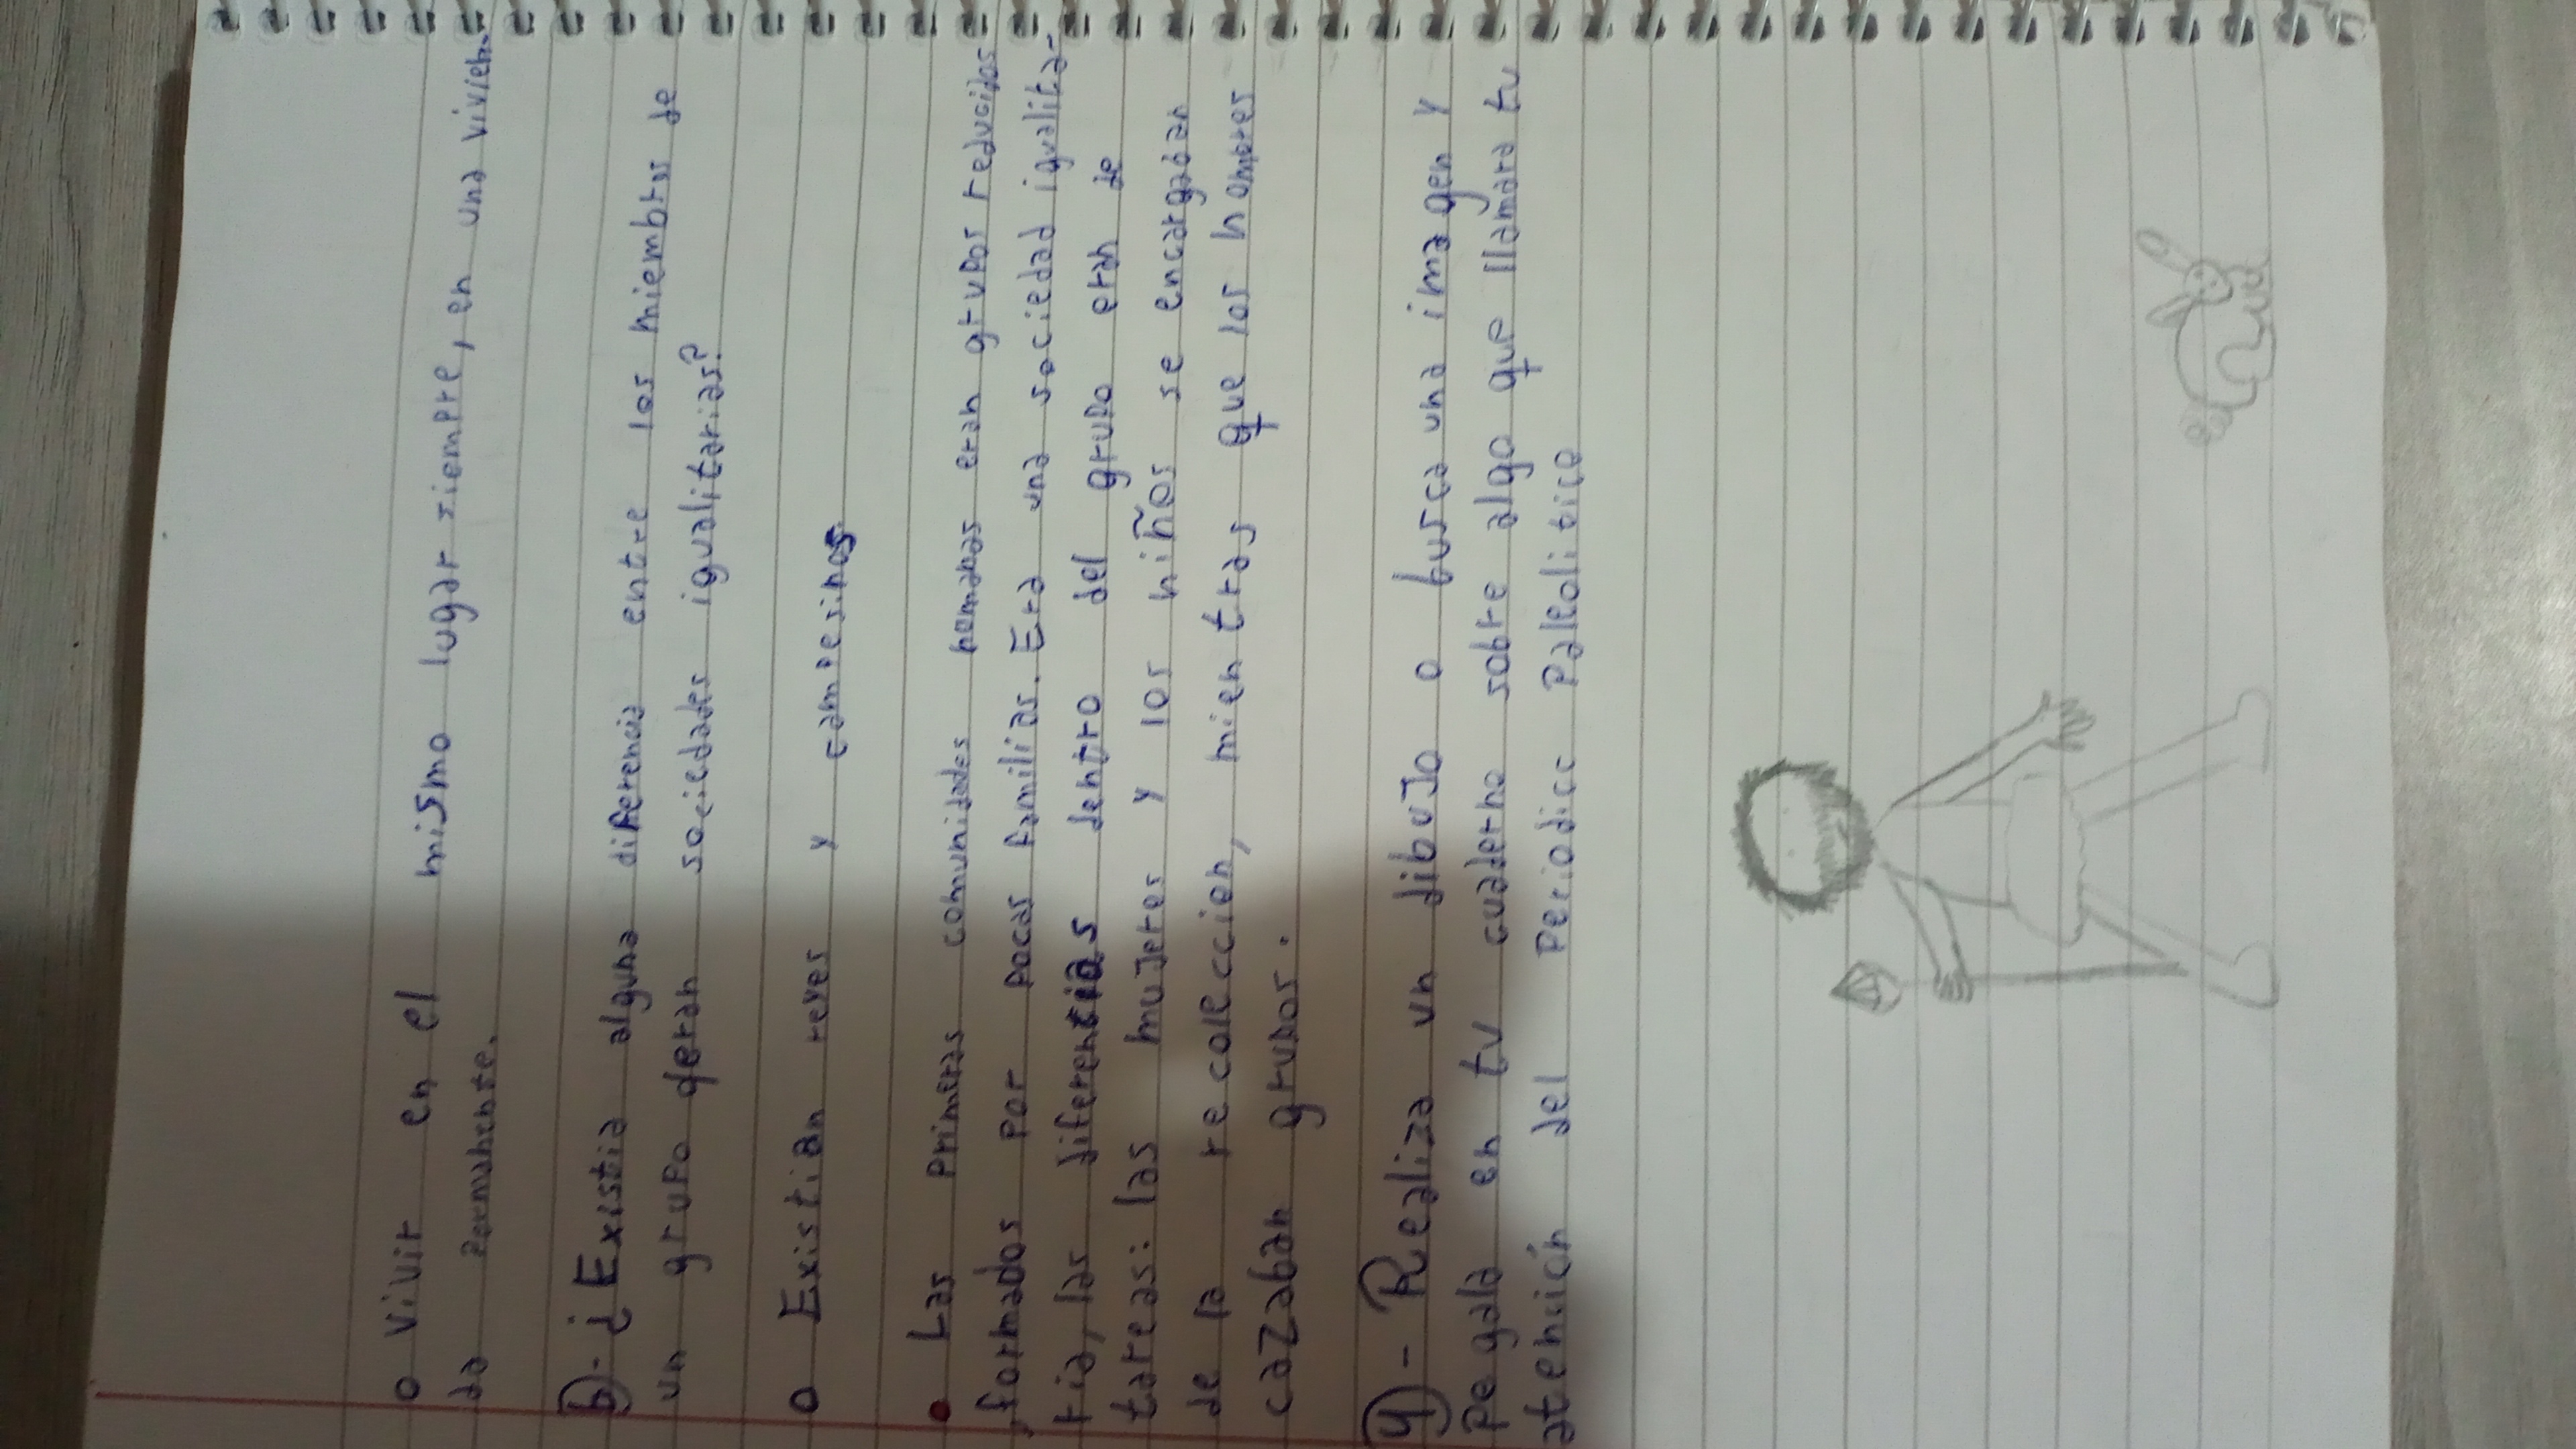 o Vivir en el mismo lugar siempre, en una vivien-
da permanente.
g)- ¿Existia alguna diferencia entre los miembros de
un grupo o eran sociedades igualitarias?
o Existian reyes y campesinos
• Las primeras comunidades humanas eran grupos reducidos
formados por pocas familias. Era una sociedad igualita-
ria, las diferencias dentro del grupo eran de
tareas: las mujeres y los niños se encargaban
de la recolección, mientras que los hombres
cazaban grupos.
4)- Realiza un dibujo o busca una imagen y
pegala en tu cuaderno sobre algo que llamara tu
atención del Periódico Paleolítico